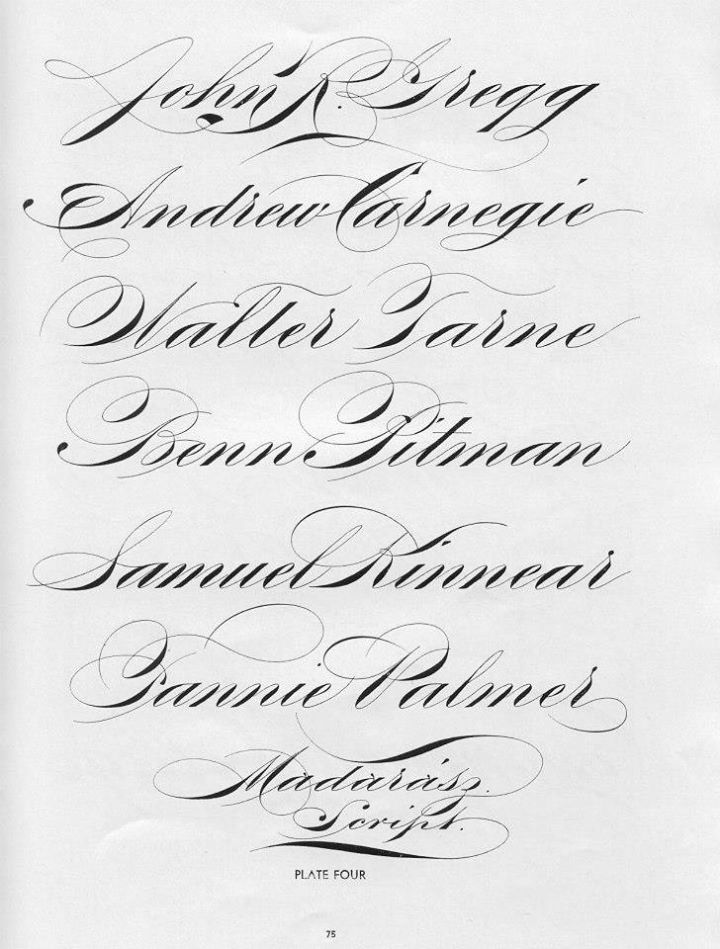 John R. Gregg
Andrew Carnegie
Walter Tarne
Benn Pitman
Samuel Kinnear
Fannie Palmer
Madarász
Script.
PLATE FOUR
75